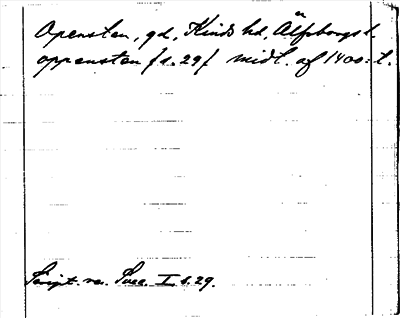 Opensten, gd, Kinds hd, Älfsborgs l.
oppensten /s. 29/ midt. af 1400: t.
Script. rer. Suec. I s. 29.